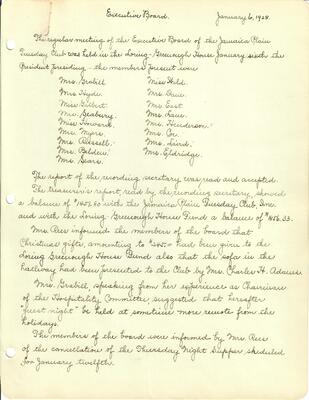 Executive Board. January 6, 1928.
The regular meeting of the Executive Board of the Jamaica Plain
Tuesday Club was held in the Loring-Greenough House January sixth the
President presiding the members present were
Mrs. Grabill Miss Wild.
Mrs. Hyde. Mrs.
Miss Gilbert. Mrs. East
Mrs. Seabury. Mrs.
Miss Mrs. Henderson.
Mrs. Myers. Mrs.
Mrs. Russell. Mrs. Laird.
Mrs. Belden. Mrs. Eldridge.
Mrs. Sears.
The report of the recording secretary was read and accepted.
The treasurer's report, read by the recording secretary, showed
a balance of with the Jamaica Plain Tuesday Club, Inc.
and with the Loring-Greenough House Fund a balance of
Mrs. Rees informed the members of the board that
Christmas gifts, amounting to had been given to the
Loring Greenough House Fund also that the sofa in the
hallway had been presented to the Club by Mrs. Charles H. Adams.
Mrs. Grabill, speaking from her experience as Chairman
of the Hospitality Committee, suggested that hereafter
"guest night" be held at sometime more remote from the
holidays.
The members of the board were informed by Mrs. Rees
of the cancellation of the Thursday Night Supper sheduled
for January twelfth.